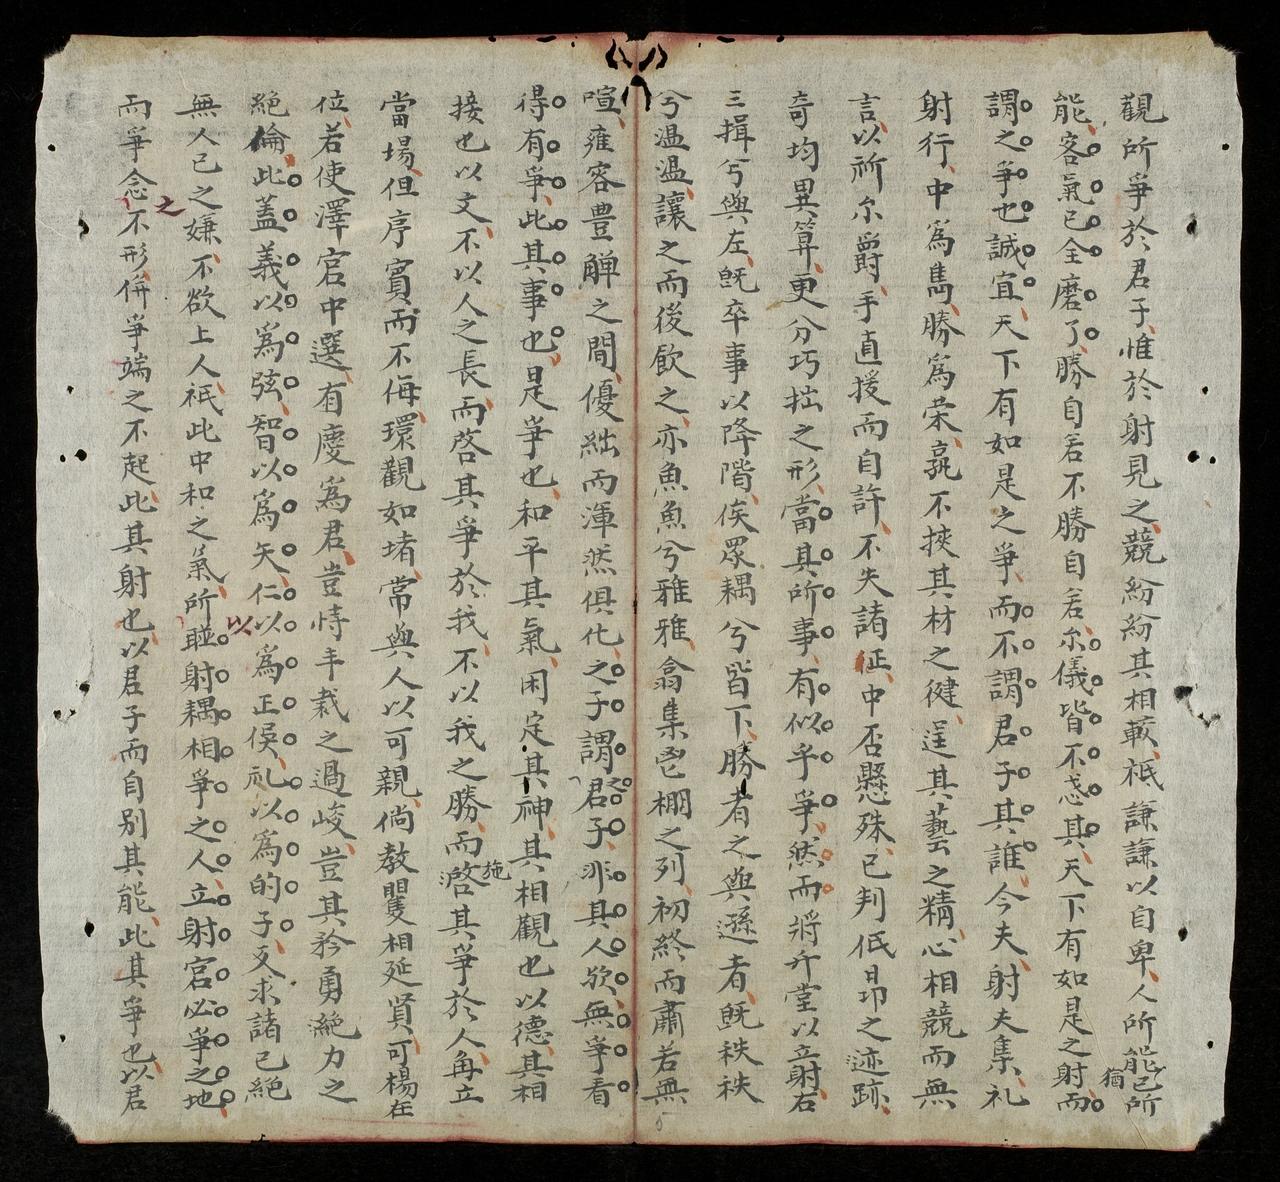 觀所爭於君子惟於射見之競紛紛其相軟祗謙謙以自卑人所能已猶所
能客氣已全磨了勝自若不勝自若尔儀皆不忒其天下有如是之射而
謂之爭也誠宜天下有如是之爭而不謂君子其誰今夫射夫集礼
射行中爲雋勝爲荣孰不挾其材之健逞其藝之精心相競而無
言以祈尔爵手直援而自許不失諸征中否懸殊已判低昂之迹跡
奇均異算更分巧拙之形當其所事有似乎爭然而將升堂以立射右
三揖兮與左既卒事以降階俟眾耦兮皆下勝者之與遜者既秩秩
兮温温讓之而後飲之亦魚魚兮雅雅翕集朢棚之列初終而肅若無
喧雍容豊觶之間優絀而渾然俱化之子謂之君子非其人欤無爭看
得有爭此其事也是爭也和平其氣困定其神其相觀也以德其相
接也以文不以人之長而啓其爭於我不以我之勝而啓施其爭於人角立
當場但序賓而不侮環觀如堵常與人以可親倘教矍相延賢可楊在
位若使澤宫中選有慶爲君豈恃手裁之過峻豈其矜勇絶力之
絶倫此蓋義以爲弦智以爲矢仁以爲正侯礼以爲的子反求諸已絶
無人已之嫌不欲上人祗此中和之氣所以聳射耦相爭之人立射宮必爭之地
而爭念之不形併爭端之不起此其射也以君子而自别其能此其爭也以君